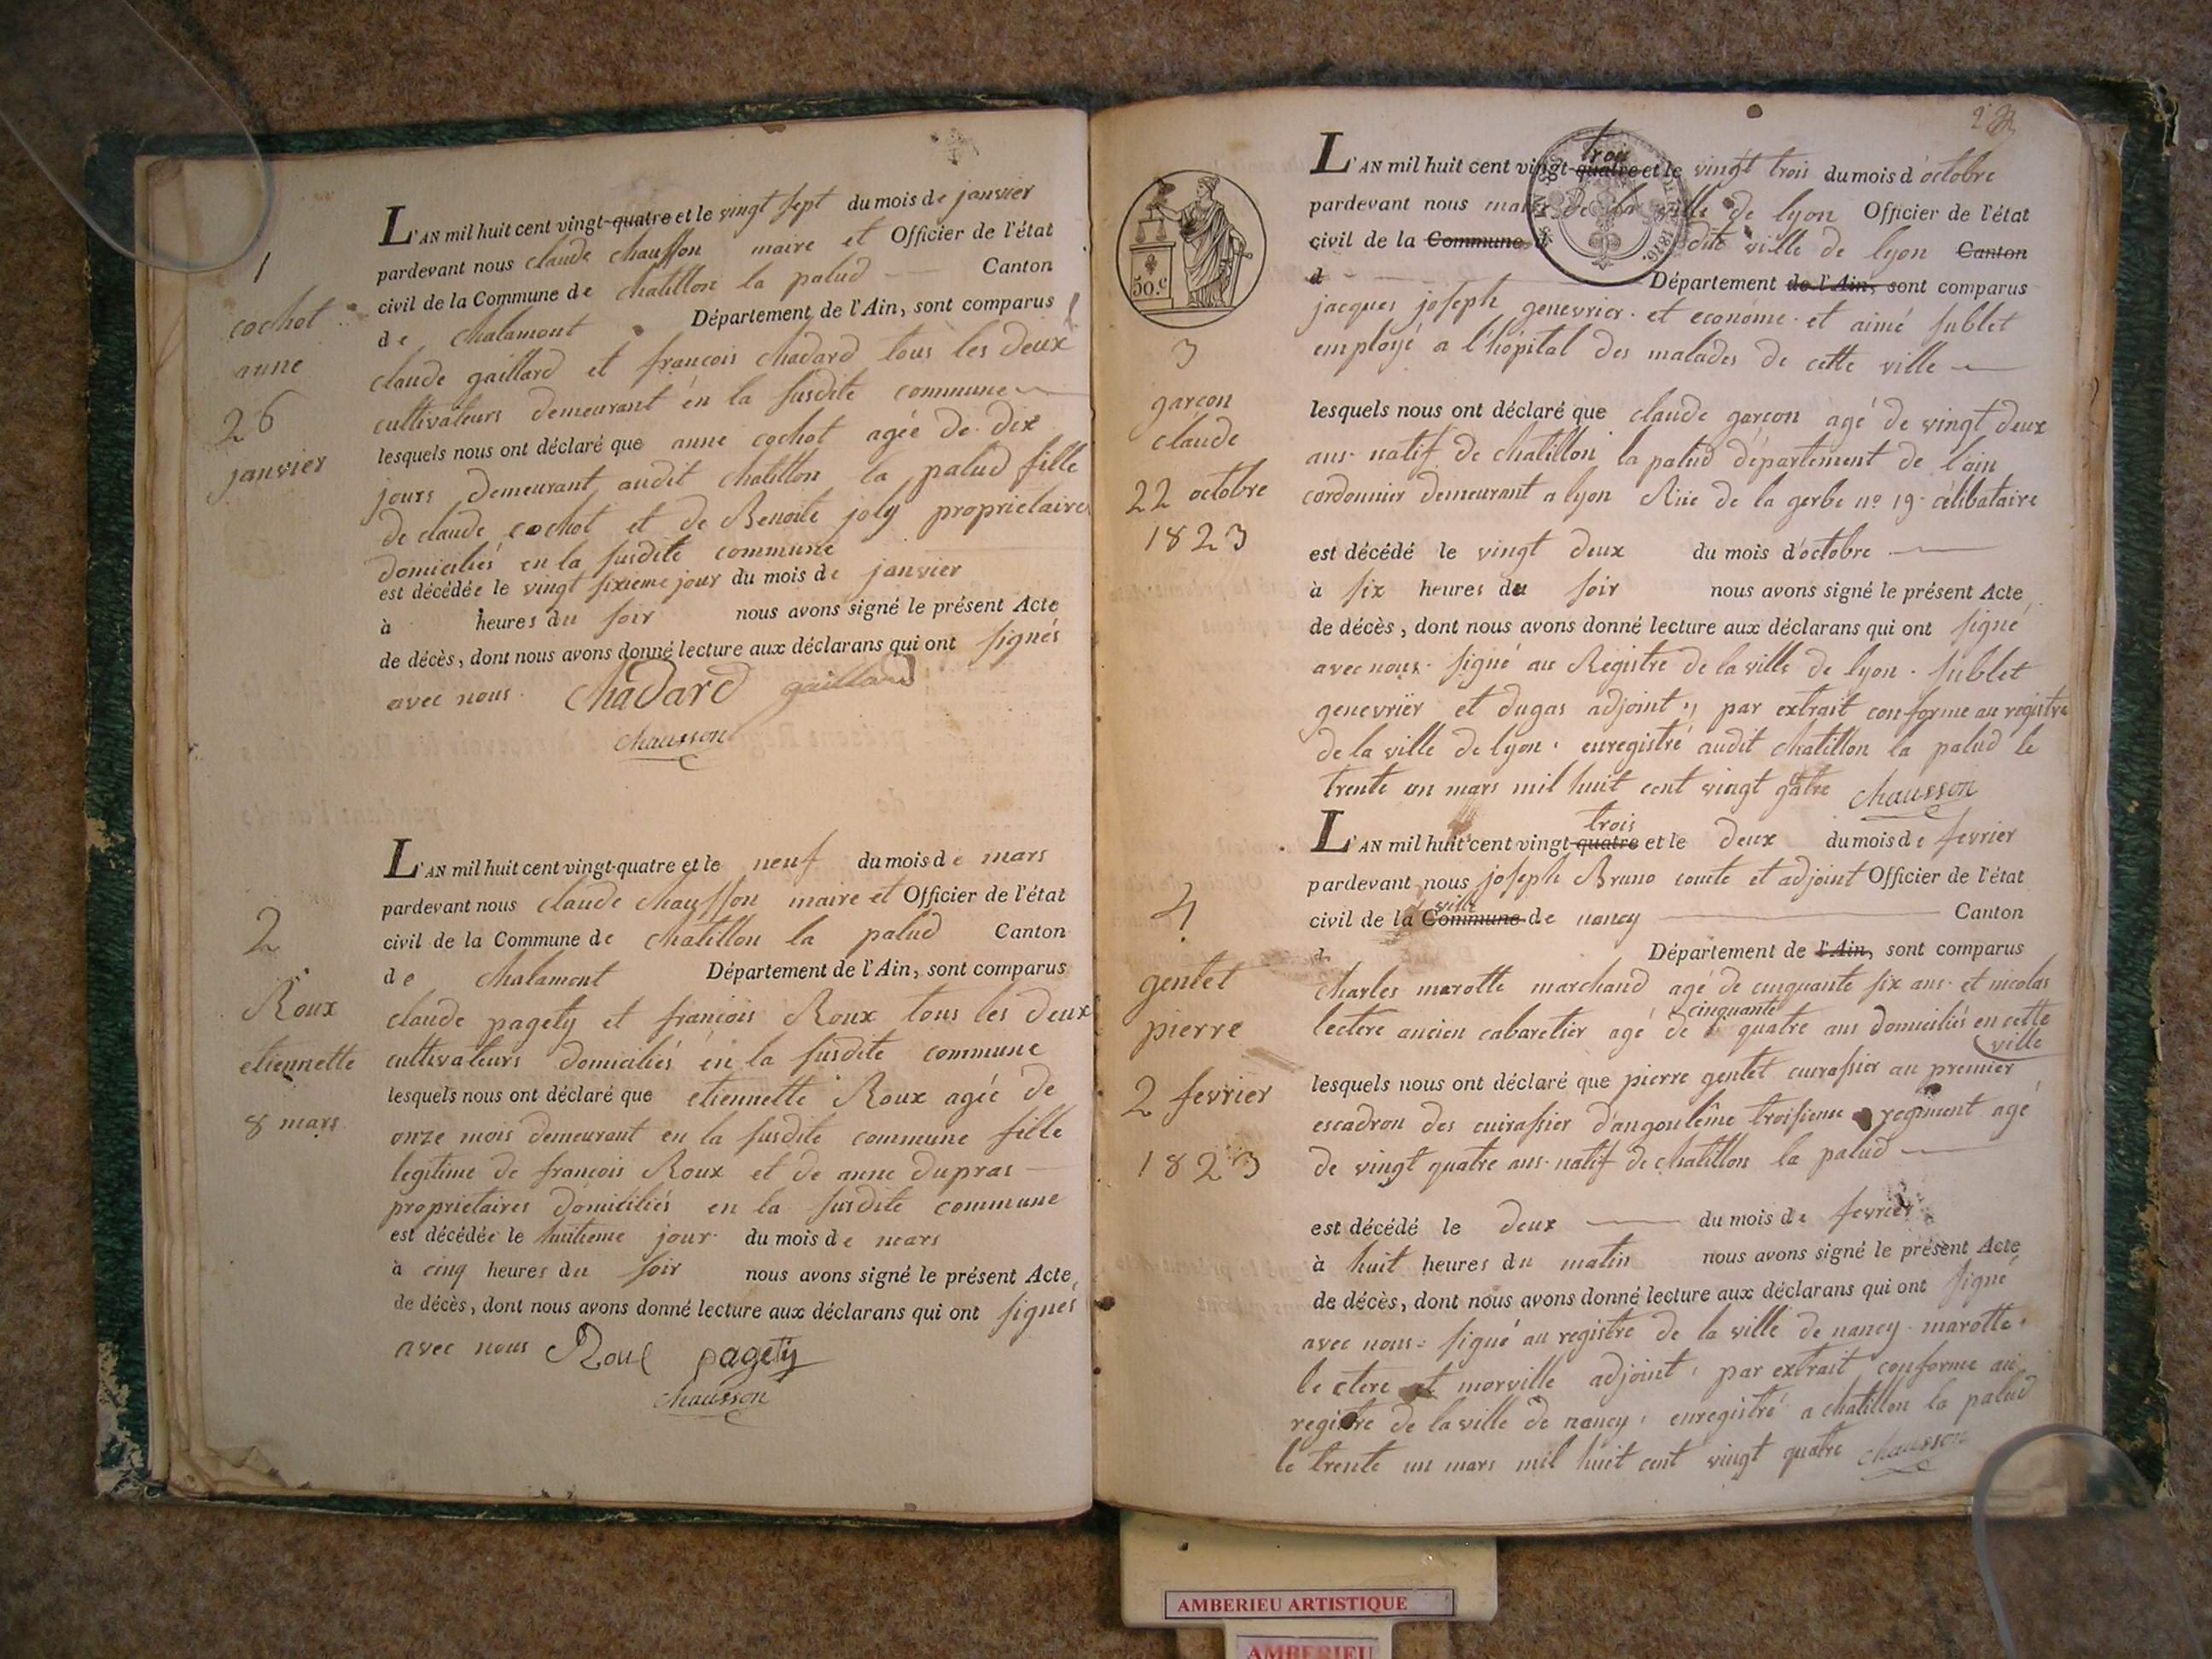 1
cochot
anne
26
janvier
L'AN mil huit cent vingt-quatre et le vingt sept du mois de janvier
pardevant nous claude chausson maire et Officier de l'état
civil de la Commune de chatillon la palud Canton
de chalamont Département de l'Ain, sont comparus
claude gaillard et francois chadard tous les deux
cultivateurs demeurant en la susdite commune
lesquels nous ont déclaré que anne cochot agée de dix
jours demeurant audit chatillon la palud fille
de claude cochot et de Benoite joly proprietaires
domiciliés en la susdite commune
est décédée le vingt sixieme jour du mois de janvier
à heures du soir nous avons signé le présent Acte
de décès, dont nous avons donné lecture aux déclarans qui ont signés
avec nous. chadard gaillard
chausson
2
Roux
etiennette
8 mars
L'AN mil huit cent vingt-quatre et le neuf du mois de mars
pardevant nous claude chausson maire et Officier de l'état
civil de la Commune de chatillon la palud Canton
de chalamont Département de l'Ain, sont comparus
claude pagety et francois Roux tous les deux
cultivateurs domiciliés en la susdite commune
lesquels nous ont déclaré que etiennette Roux agée de
onze mois demeurant en la susdite commune fille
legitime de francois Roux et de anne dupras
proprietaires domiciliés en la susdite commune
est décédée le huitieme jour du mois de mars
à cinq heures du soir nous avons signé le présent Acte
de décès, dont nous avons donné lecture aux déclarans qui ont signés
avec nous Roux pagety
chausson
50.c
3
garcon
claude
22 octobre
1823
trois
L'AN mil huit cent vingt-quatre et le vingt trois du mois d'octobre
pardevant nous maire de la ville de lyon Officier de l'état
civil de la Commune d dite ville de lyon Canton
d Département de l'Ain, sont comparus
jacques joseph genevrier. et econome. et aimé sublet
employé a l'hopital des malades de cette ville
lesquels nous ont déclaré que claude garcon agé de vingt deux
ans. natif de chatillon la palud département de l'ain
cordonnier demeurant a lyon Rue de la gerbe no 19. célibataire
est décédé le vingt deux du mois d'octobre
à six heures du soir nous avons signé le présent Acte
de décès, dont nous avons donné lecture aux déclarans qui ont signé
avec nous. signé au Registre de la ville de lyon. sublet
genevrier et dugas adjoint, par extrait conforme au registre
de la ville de lyon. enregistré audit chatillon la palud le
trente un mars mil huit cent vingt qatre chausson
4
gentet
pierre
2 fevrier
1823
trois
L'AN mil huit cent vingt-quatre et le deux du mois de fevrier
pardevant nous joseph Bruno comte et adjoint Officier de l'état
ville
civil de la Commune de nancy Canton
d Département de l'Ain, sont comparus
charles marotte marchand agé de cinquante six ans. et nicolas
cinquante
lectere ancien cabaretier agé de quatre ans domiciliés en cette
ville
lesquels nous ont déclaré que pierre gentet cuirassier au premier
escadron des cuirassier d'angoulême troisieme regiment agé
de vingt quatre ans. natif de chatillon la palud
est décédé le deux du mois de fevrier
à huit heures du matin nous avons signé le présent Acte
de décès, dont nous avons donné lecture aux déclarans qui ont signé
avec nous. signé au registre de la ville de nancy. marotte.
le ctere et morville adjoint, par extrait conforme au
registre de la ville de nancy, enregistré a chatillon la palud
le trente un mars mil huit cent vingt quatre chausson
AMBERIEU ARTISTIQUE
AMBERIEU